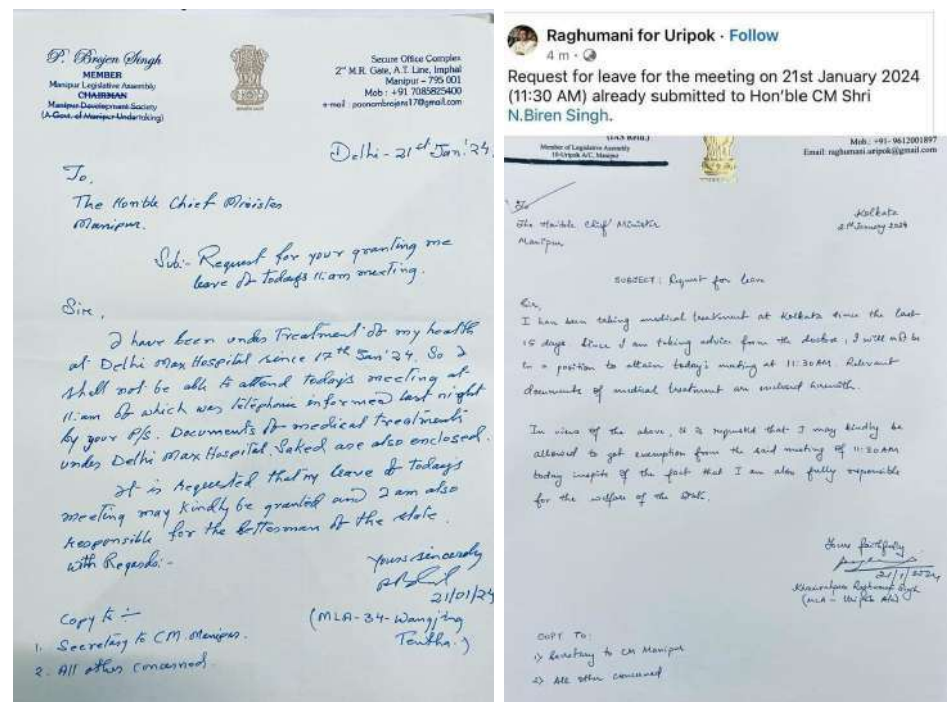 P. Brojen Singh
MEMBER
Manipur Legislative Assembly
CHAIRMAN
Manipur Development Society
(A Govt. of Manipur Undertaking)
Secure Office Complex
2nd M.R. Gate, A.T. Line, Imphal
Manipur – 795 001
Mob : +91 7085825400
e-mail : poonambrojens17@gmail.com
Delhi - 21st Jan '24.
To,
The Honble Chief Minister
Manipur.
Sub:- Request for your granting me
leave of todays 11.am meeting.
Sir,
I have been under Treatment of my health
at Delhi Max Hospital since 17th Jan '24. So I
shall not be able to attend today's meeting at
11.am of which was telephonic informed last night
by your P/s. Documents of medical treatments
under Delhi Max Hospital, Saked are also enclosed.
It is requested that my leave of todays
meeting may kindly be granted and I am also
responsible for the betterman of the state.
with Regards:-
Yours sincerely
21/01/24
(MLA-34-Wangjing
Tentha.)
Copy to :-
1. Secretary to CM. Manipur.
2. All others concerned.
Raghumani for Uripok · Follow
4 m ·
Request for leave for the meeting on 21st January 2024
(11:30 AM) already submitted to Hon'ble CM Shri
N.Biren Singh.
(IAS Retd.)
Member of Legislative Assembly
10-Uripok A/C, Manipur
Mob.: +91- 9612001897
Email: raghumani.uripok@gmail.com
To
The Hon'ble Chief Minister
Manipur
Kolkata
21st January 2024
SUBJECT: Request for leave
Sir,
I have been taking medical treatment at Kolkata since the last
15 days. Since I am taking advice from the doctors, I will not be
in a position to attain today's meeting at 11:30AM. Relevant
documents of medical treatment are enclosed herewith.
In views of the above, it is requested that I may kindly be
allowed to get exemption from the said meeting of 11:30AM
today inspite of the fact that I am also fully responsible
for the welfare of the State.
Yours faithfully
21/1/2024
Khwairakpam Raghumani Singh
(MLA - Uripok A/C)
COPY TO:
1) Secretary to CM Manipur
2) All other concerned